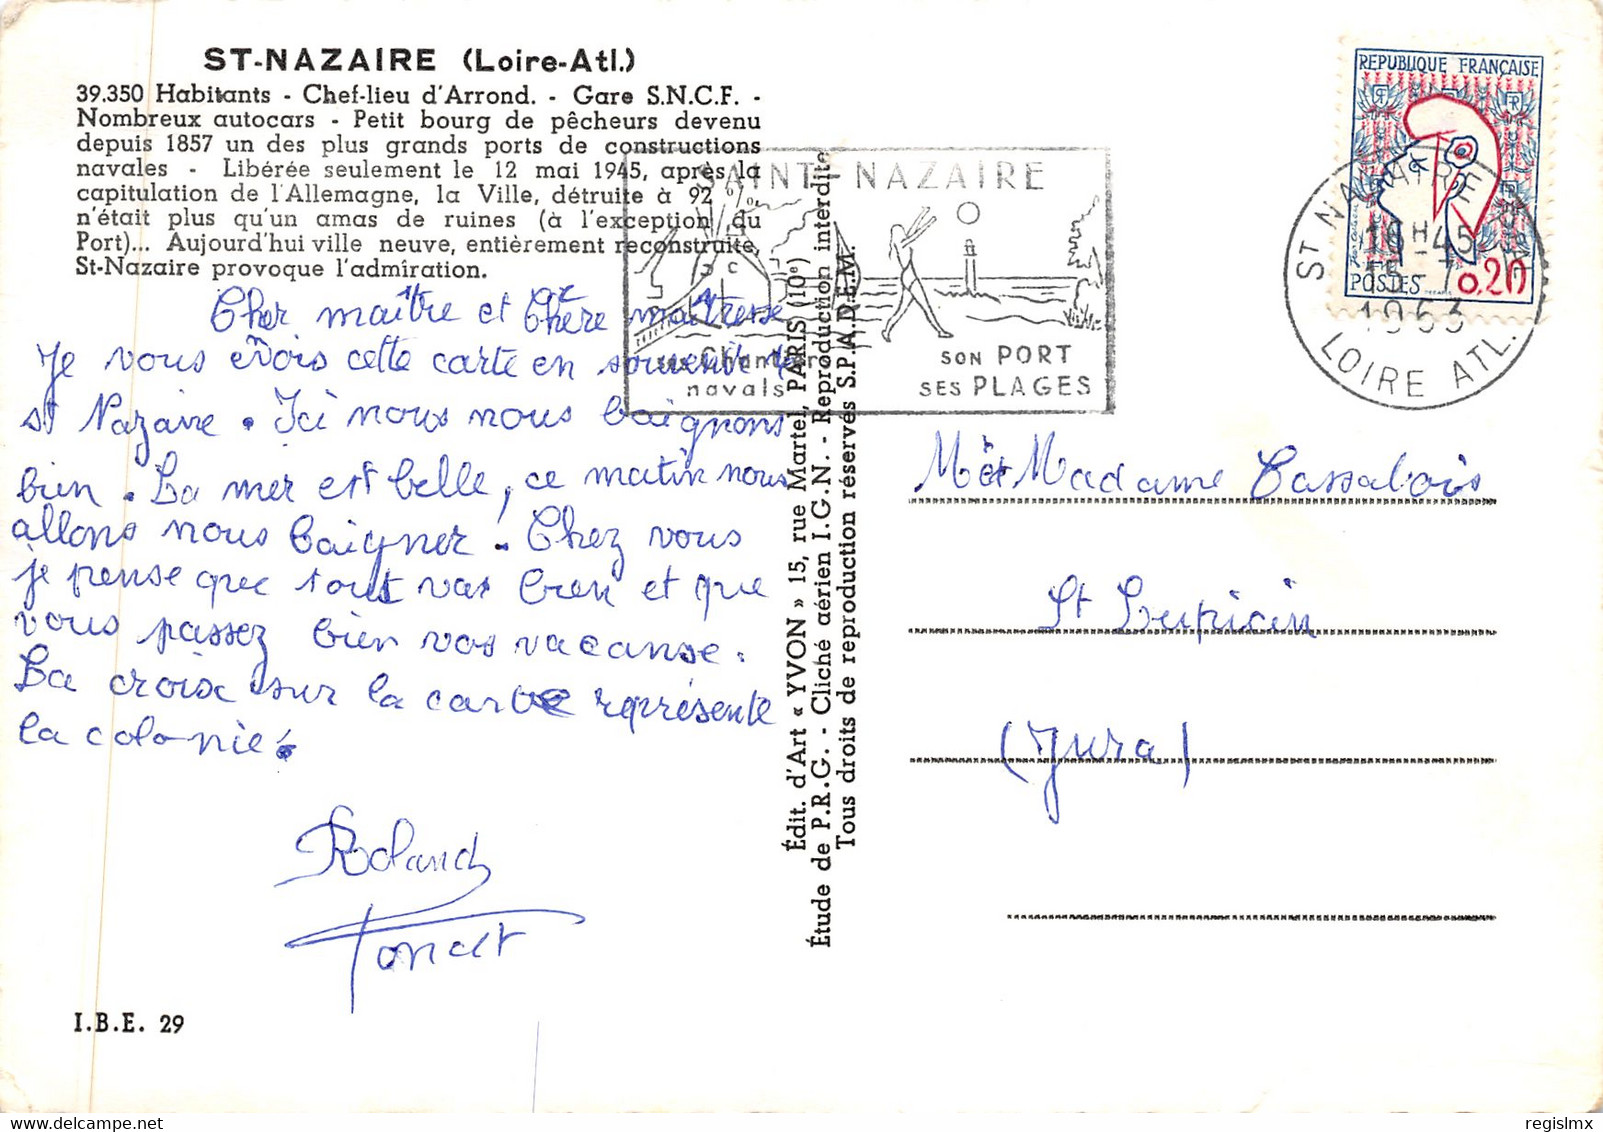 ST-NAZAIRE (Loire-Atl.)
39.350 Habitants - Chef-lieu d'Arrond. - Gare S.N.C.F. -
Nombreux autocars - Petit bourg de pêcheurs devenu
depuis 1857 un des plus grands ports de constructions
navales - Libérée seulement le 12 mai 1945, après la
capitulation de l'Allemagne, la Ville, détruite à 92 %,
n'était plus qu'un amas de ruines (à l'exception du
Port)... Aujourd'hui ville neuve, entièrement reconstruite,
St-Nazaire provoque l'admiration.
Cher maître et Chère maîtresse
Je vous envois cette carte en souvenir de
st Nazaire. Ici nous nous baignons
bien. La mer est belle, ce matin nous
allons nous baigner. Chez vous
je pense que tout vas bien et que
vous passez bien vos vacanse.
La croix sur la carte représente
la colonie.
Roland
I.B.E. 29
Édit. d'Art « YVON » 15, rue Martel, PARIS (10e)
Étude de P.R.G. - Cliché aérien I.G.N. - Reproduction interdite
Tous droits de reproduction réservés S.P.A.D.E.M.
SAINT-NAZAIRE
ses Chantiers
navals
SON PORT
SES PLAGES
REPUBLIQUE FRANÇAISE
POSTES 0,20
ST NAZAIRE
16H45
15-7
1963
LOIRE ATL.
M et Madame Cassabois
St Lupicin
(Jura)
regislmx